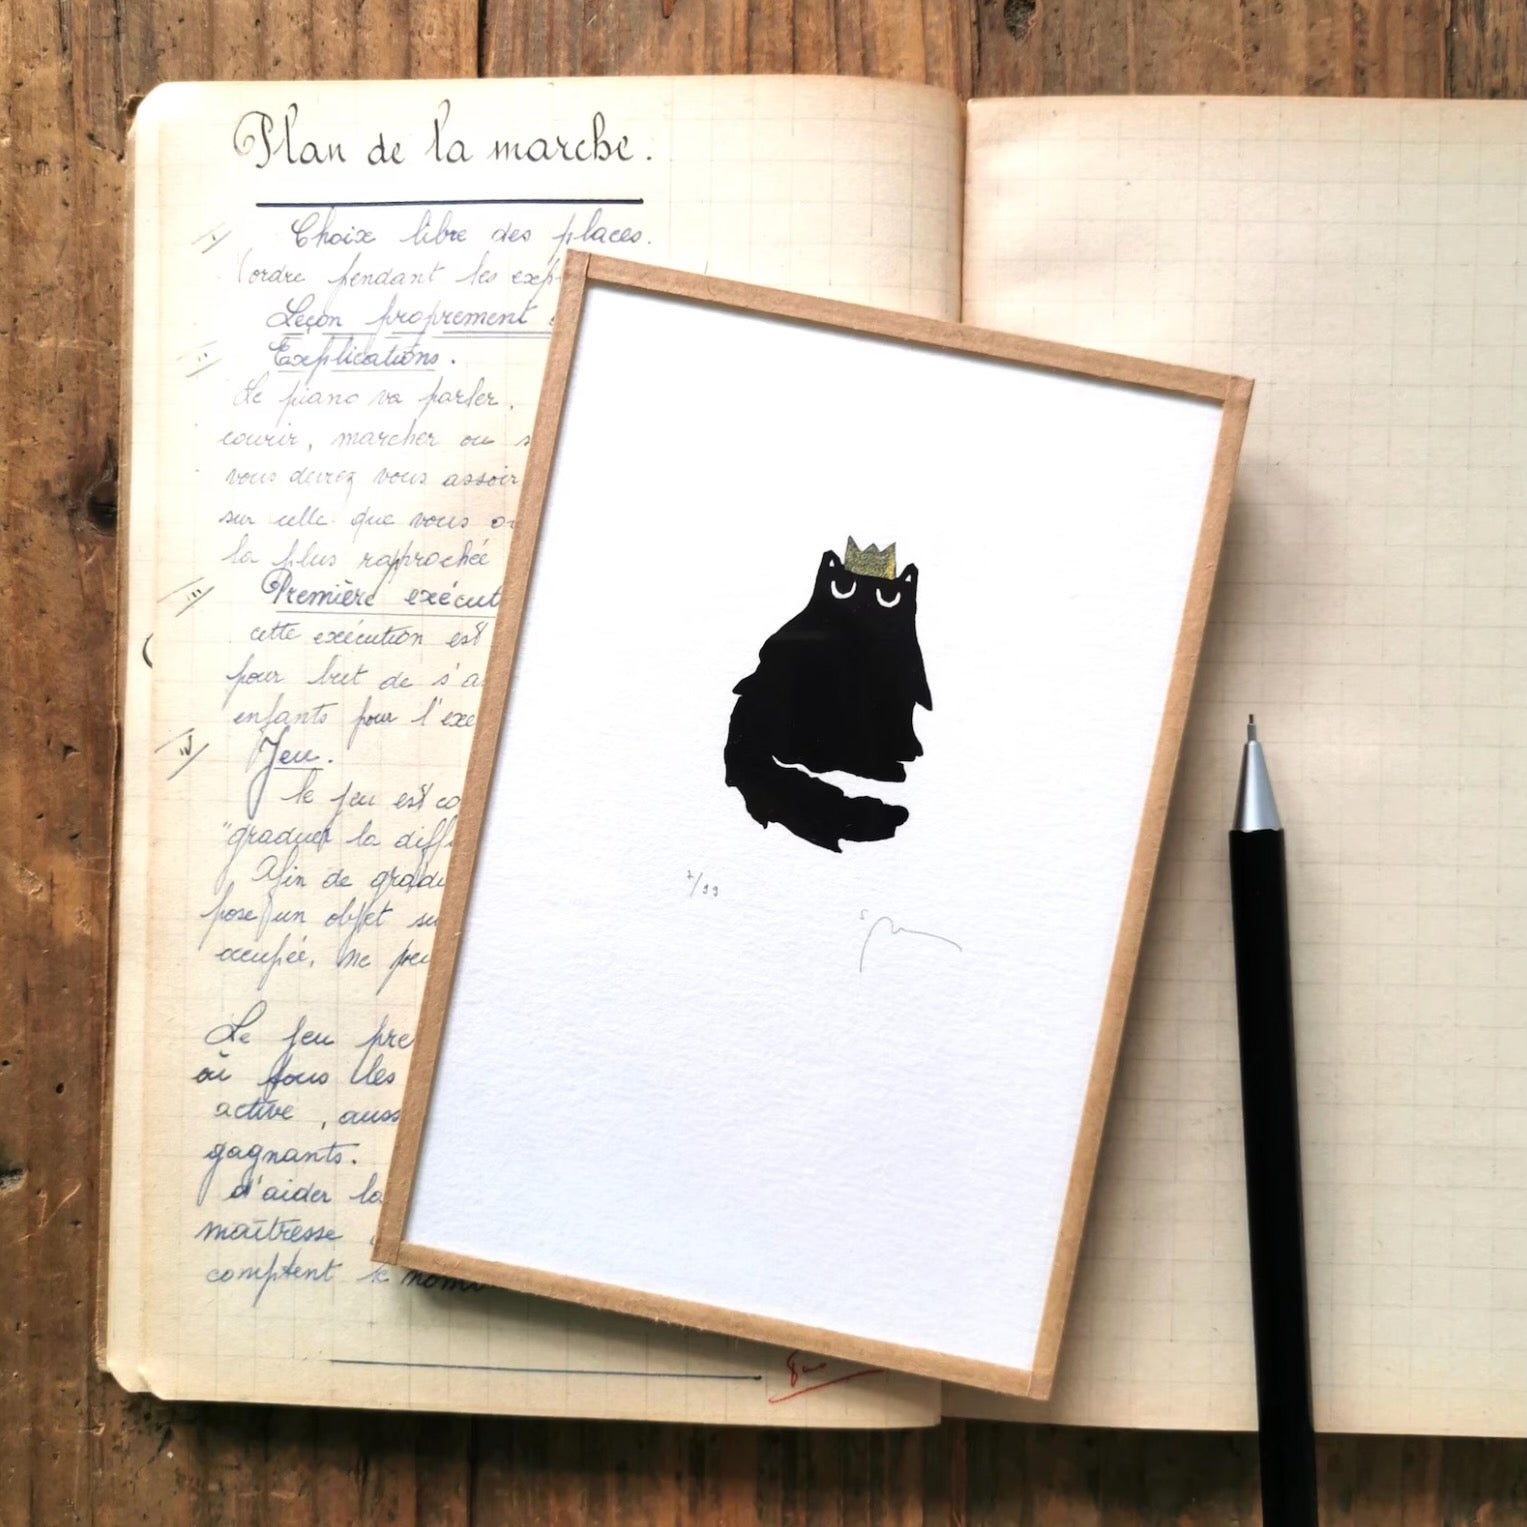 Plan de la marche.
I/ Choix libre des places.
(ordre pendant les exp
Leçon proprement
II/ Explications.
Le piano va parler.
courir, marcher ou s
vous devrez vous assoir
sur celle que vous
la plus rapprochée
III/ Première exécut
cette exécution est
pour but de s'a
enfants pour l'exé
IV/ Jeu.
le jeu est co
"graduer la diff
Afin de gradu
pose un objet su
occupée, ne peu
Le jeu pre
où tous les
active, auss
gagnants.
d'aider la
maîtresse
comptent le nom
7/99